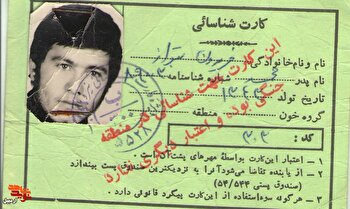 کارت شناسائی
نام و نام خانوادگی :
نام پدر : شماره شناسنامه
تاریخ تولد : ۱۳۴۴
گروه خون : منطقه
این کارت جهت شناسائی در منطقه
جنگی بوده و اعتبار دیگری ندارد
کد : ۲۰۲
۱ - اعتبار این کارت بواسطه مهرهای پشت آن است .
۲ - از یابنده تقاضا می‌شود آنرا به نزدیکترین صندوق پست بیندازد
(صندوق پستی ۵۴/۵۴۴)
۳ - هرگونه سوء استفاده از این کارت پیگرد قانونی دارد .